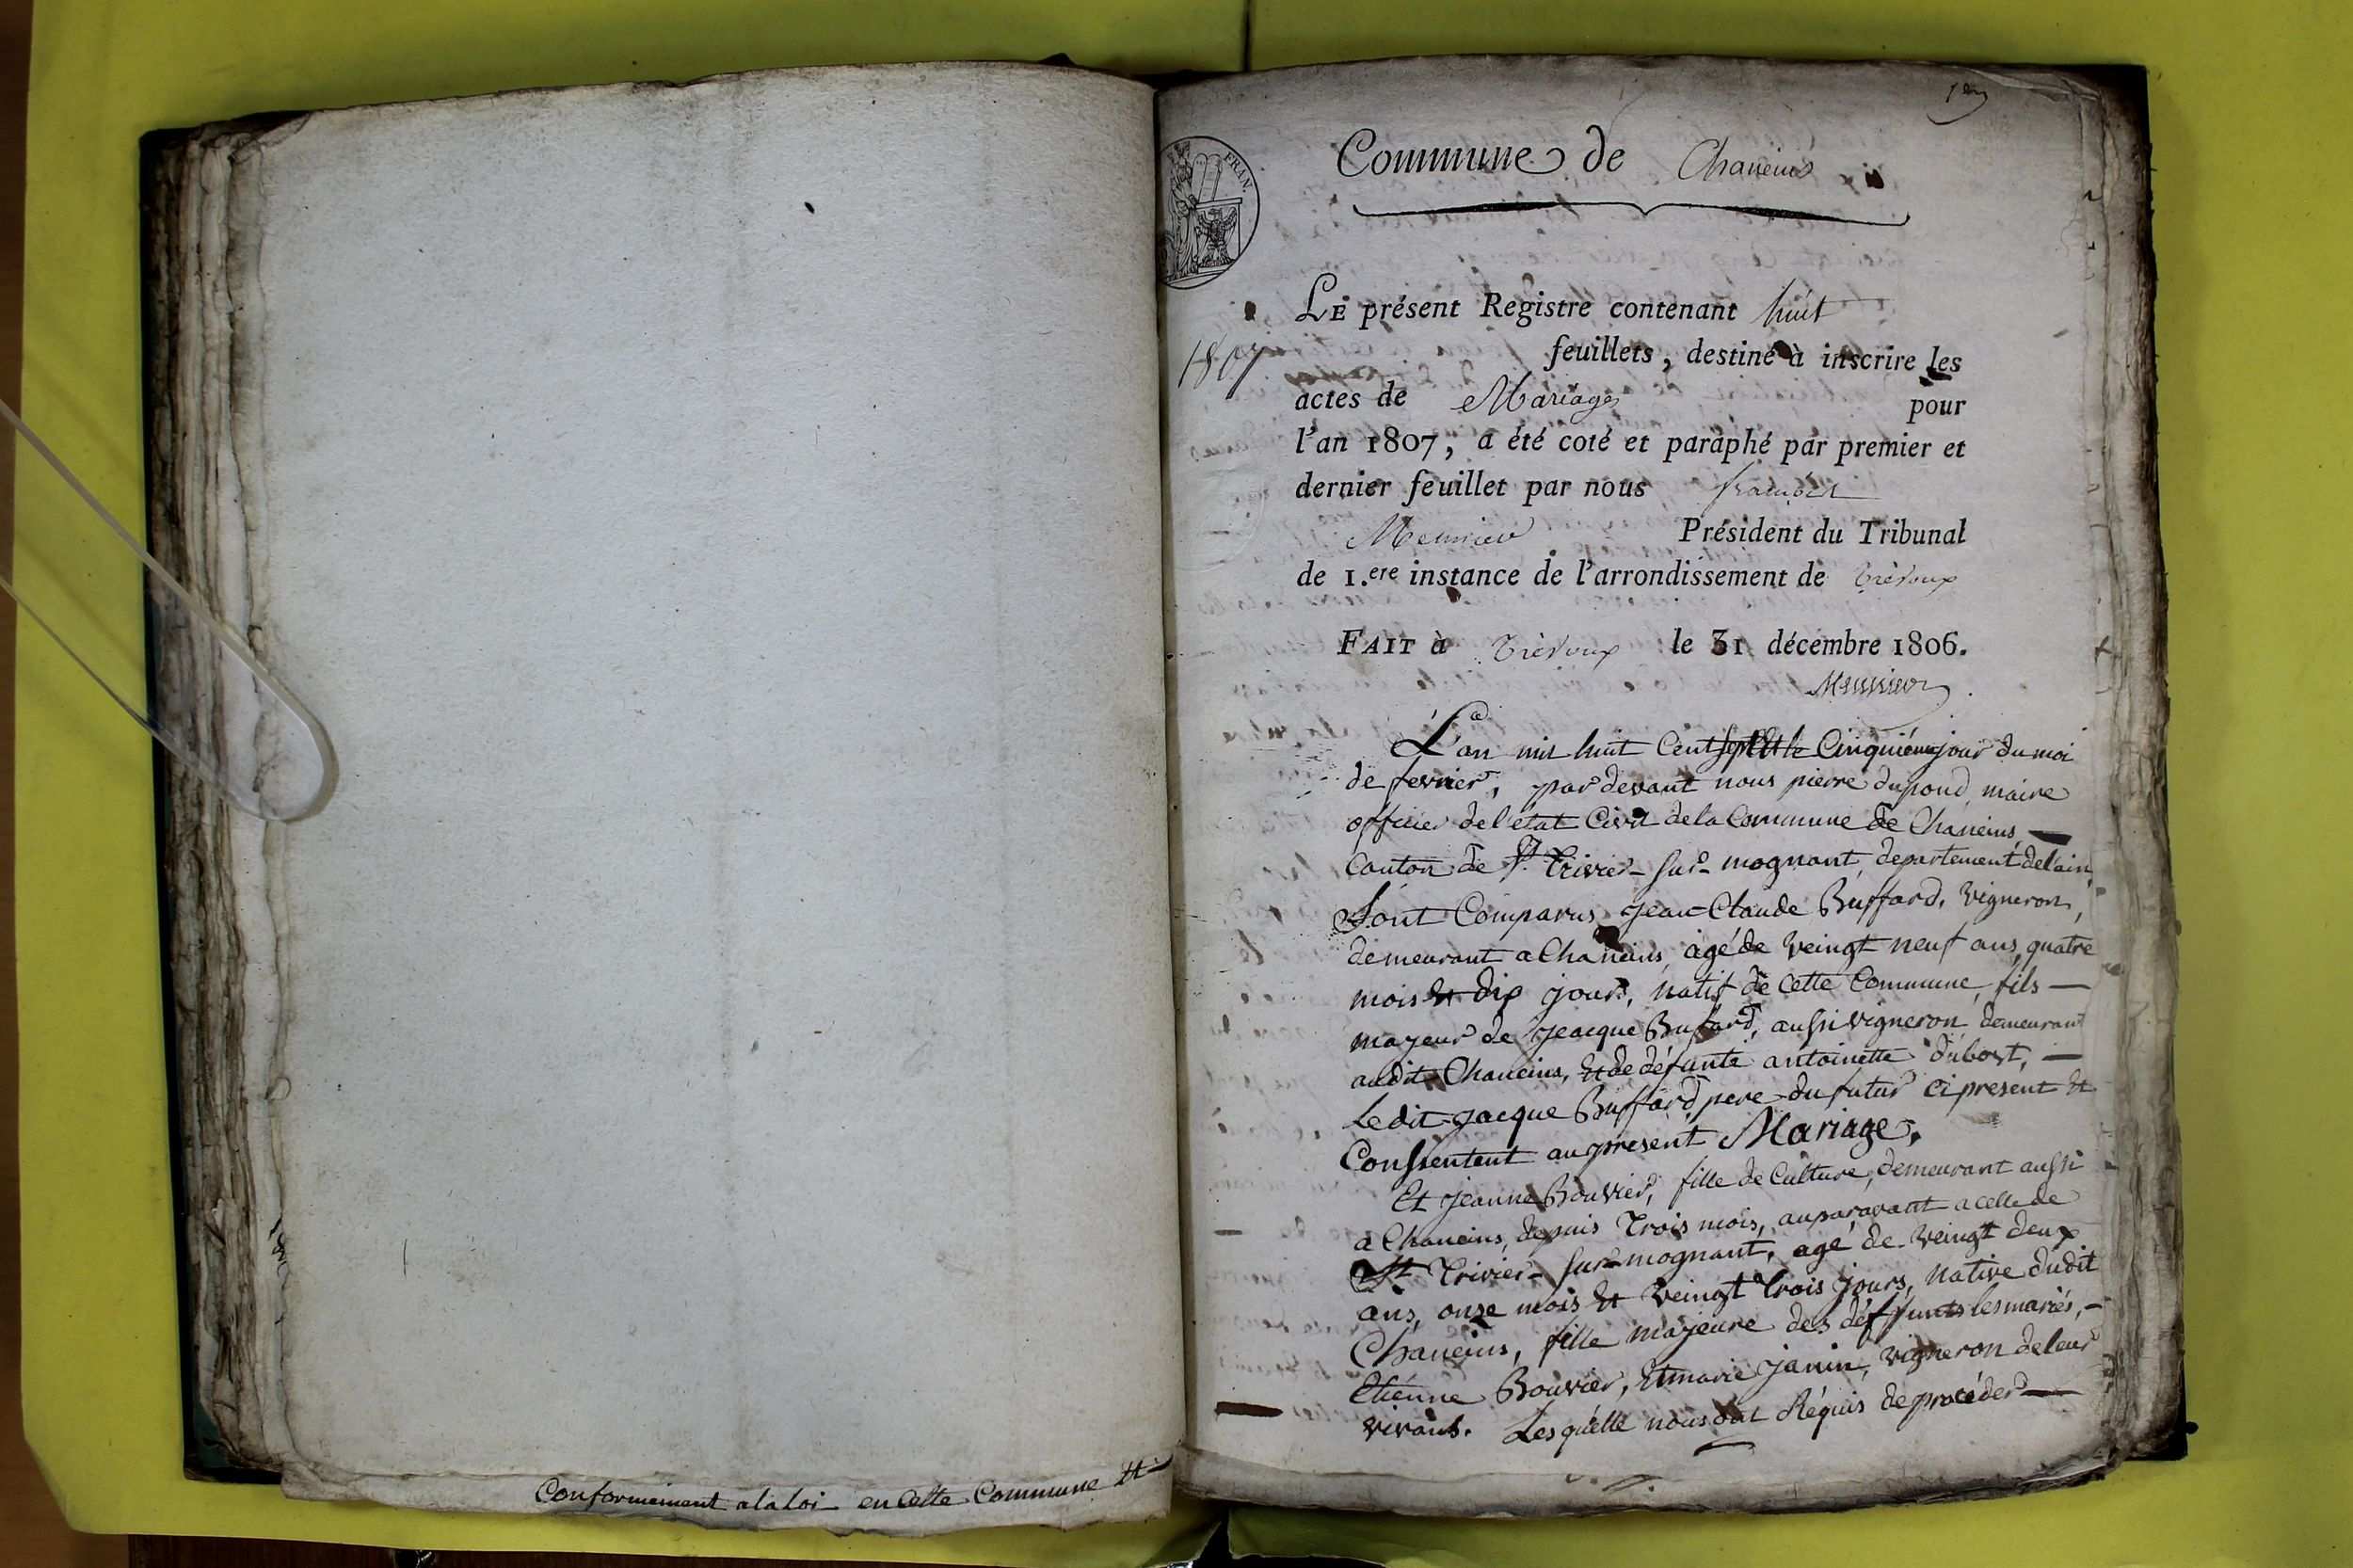 Conformément a la loi en Cette Commune Et
1er
FRAN.
Commune de Chaneins
LE présent Registre contenant huit
1807
feuillets, destiné à inscrire les
actes de Mariage pour
l'an 1807, a été coté et paraphé par premier et
dernier feuillet par nous
Président du Tribunal
de 1.ere instance de l'arrondissement de Trévoux
FAIT à Trévoux le 31 décembre 1806.
L'an mil huit Cent sept Et le Cinquième jour du moi
de fevrier, par devant nous pierre dupond, maire
officier de l'etat Civil de la Commune de Chaneins
Canton de St. Trivier-sur-mognant, departement de lain,
Sont Comparus jean Claude Buffard, Vigneron,
demeurant a Chaneins, âgé de veingt neuf ans, quatre
mois Et dix jours, natif de Cette Commune, fils
majeur de Jeacque Bufard, aussi vigneron, demeurant
audit Chaneins, Et de défunte antoinette dubost,
Ledit jacque Buffard, pere du futur ci present Et
Conssentent au present Mariage.
Et jeanne Bouvier, fille de Culture, demeurant aussi
a Chaneins, depuis Trois mois, auparavant a celle de
St Trivier-sur-mognant, agé de veingt deux
ans, onze mois Et veingt trois jours, Native dudit
Chaneins, fille majeure des déffunts les mariés,
Etiénne Bouvier, Et marie janin, vigneron de leur
vivans. Les quélle nous ont Réquis de procéder